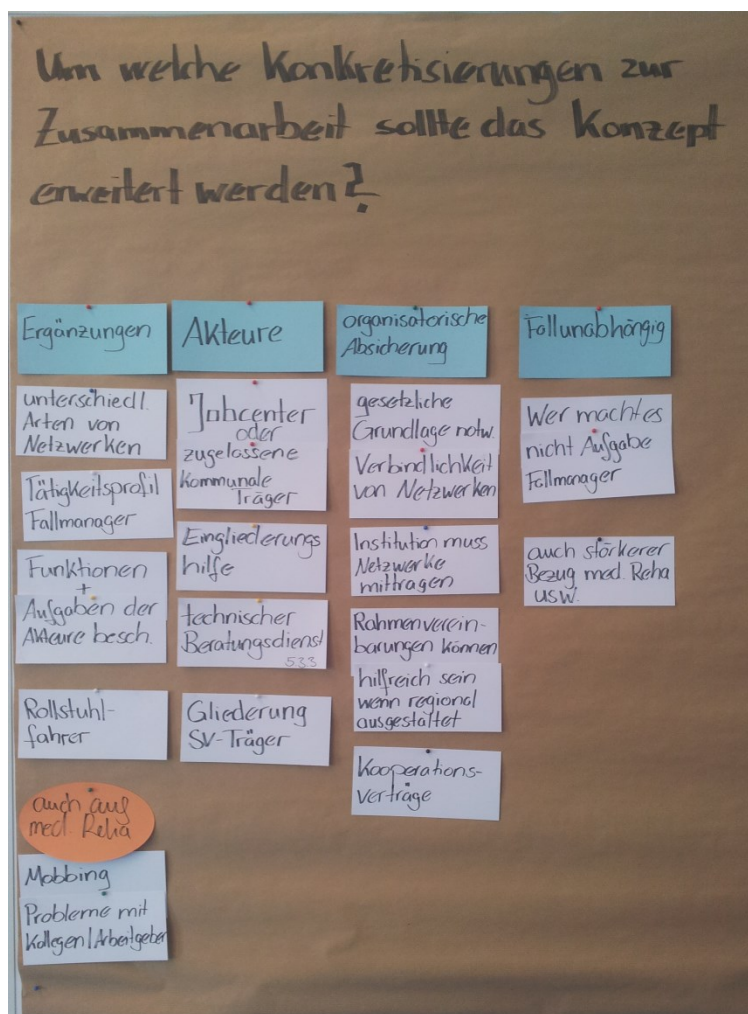 Um welche Konkretisierungen zur
Zusammenarbeit sollte das Konzept
erweitert werden?
Ergänzungen
unterschiedl.
Arten von
Netzwerken
Tätigkeitsprofil
Fallmanager
Funktionen
+
Aufgaben der
Akteure besch.
Rollstuhl-
fahrer
auch aus
med. Reha
Mobbing
Probleme mit
Kollegen/Arbeitgeber
Akteure
Jobcenter
oder
zugelassene
Kommunale
Träger
Eingliederungs
hilfe
technischer
Beratungsdienst
533
Gliederung
SV-Träger
organisatorische
Absicherung
gesetzliche
Grundlage notw.
Verbindlichkeit
von Netzwerken
Institution muss
Netzwerke
mittragen
Rahmenverein-
barungen können
hilfreich sein
wenn regional
ausgestaltet
Kooperations-
verträge
Fallunabhängig
Wer macht es
nicht Aufgabe
Fallmanager
auch stärkerer
Bezug med. Reha
usw.